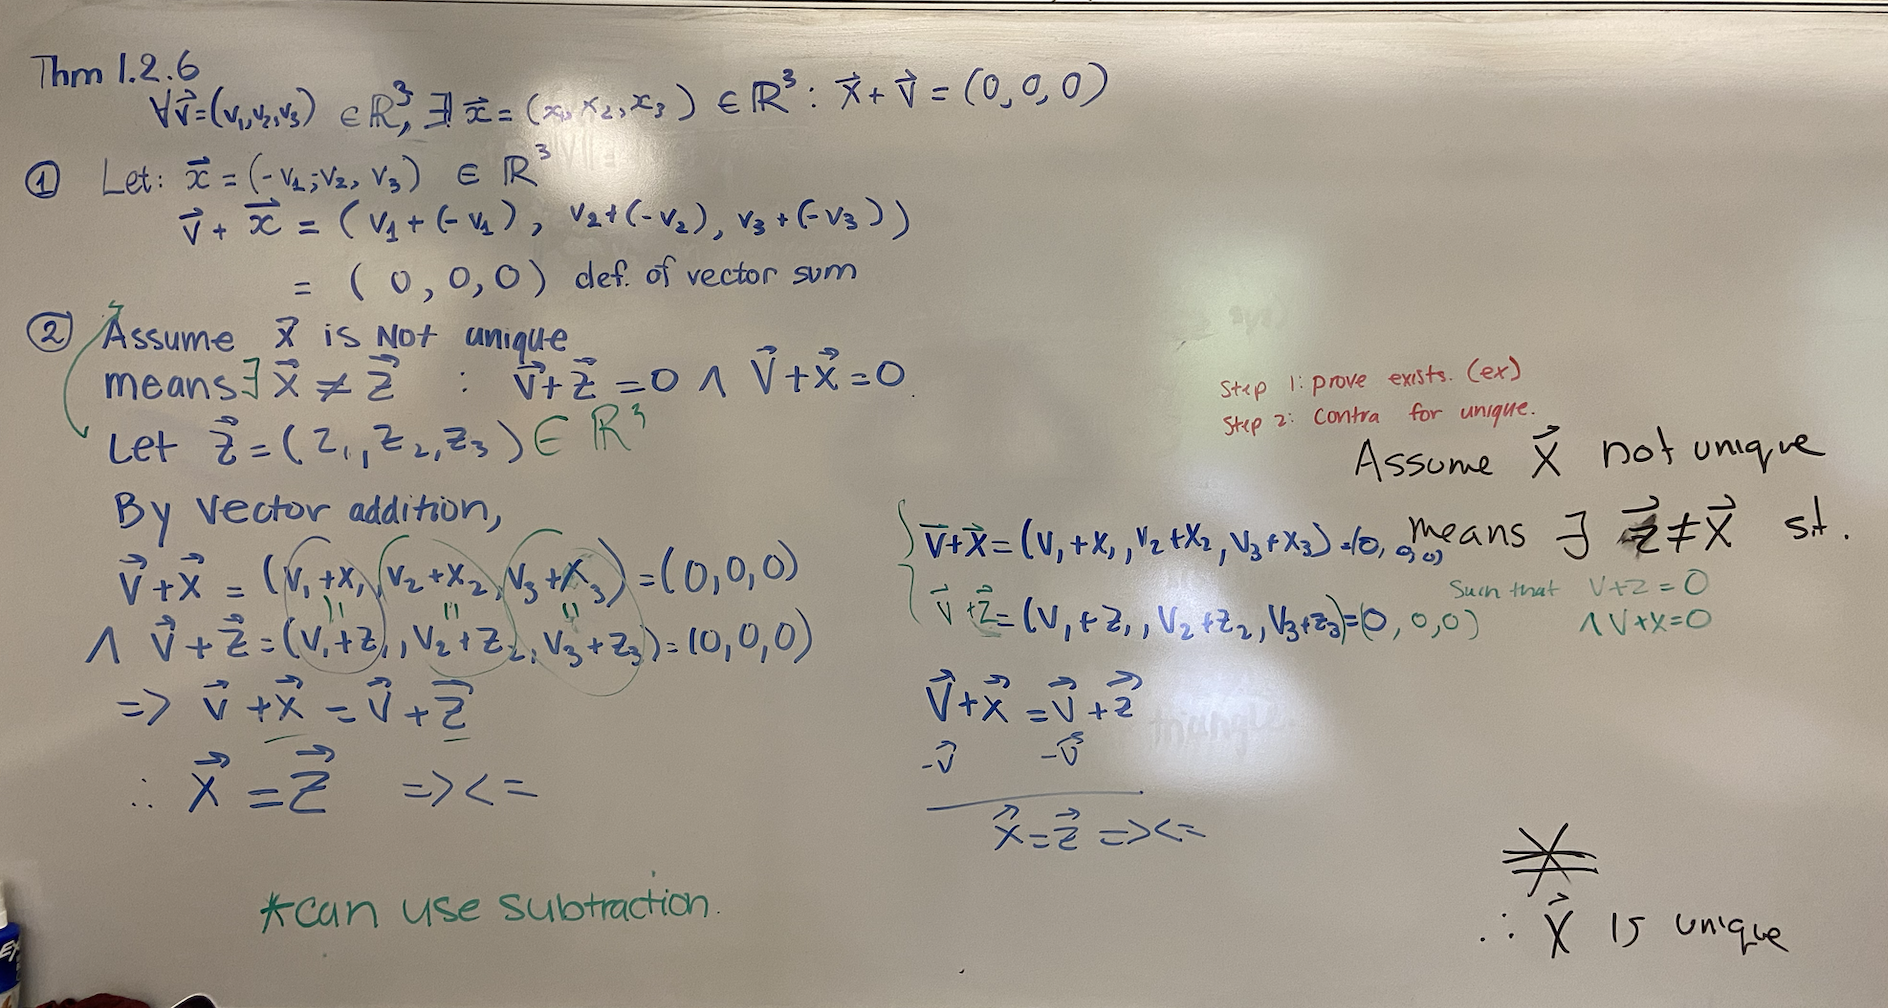 Thm 1.2.6
∀v⃗=(v₁,v₂,v₃) ∈ℝ³, ∃! x⃗ = (x₁, x₂, x₃) ∈ ℝ³ : x⃗ + v⃗ = (0, 0, 0)
① Let: x⃗ = (-v₁,-v₂, v₃) ∈ ℝ³
v⃗ + x⃗ = (v₁ + (-v₁), v₂+(-v₂), v₃+(-v₃))
= (0, 0, 0) def. of vector sum
② Assume x⃗ is Not unique
means ∃ x⃗ ≠ z⃗ : v⃗+z⃗ =0 ∧ v⃗+x⃗=0
Let z⃗ = (z₁, z₂, z₃) ∈ ℝ³
By vector addition,
v⃗+x⃗ = (v₁+x₁, v₂+x₂, v₃+x₃) = (0,0,0)
∧ v⃗+z⃗ = (v₁+z₁, v₂+z₂, v₃+z₃) = (0,0,0)
=> v⃗+x⃗ = v⃗+z⃗
∴ x⃗ = z⃗ =><=
*can use subtraction.
Step 1: prove exists. (ex)
Step 2: contra for unique.
Assume x⃗ not unique
means ∃ z⃗≠x⃗ st.
Such that v+z=0
∧ v+x=0
v⃗+x⃗=(v₁+x₁, v₂+x₂, v₃+x₃)=(0, 0, 0)
v⃗+z⃗=(v₁+z₁, v₂+z₂, v₃+z₃)=(0, 0,0)
v⃗+x⃗ = v⃗+z⃗
-v⃗ -v⃗
x⃗=z⃗ =><=
∴ x⃗ is unique